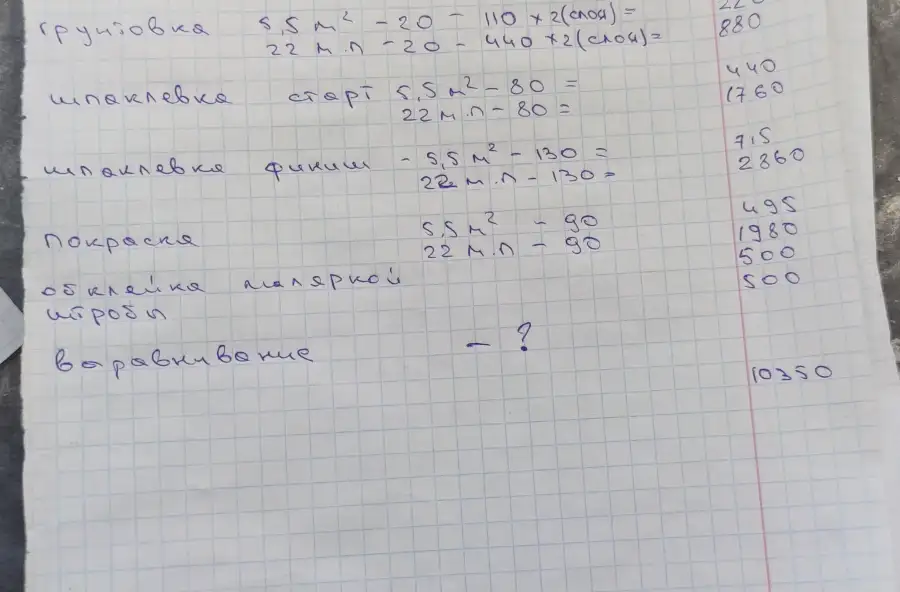 грунтовка 5,5 м² - 20 - 110 × 2 (слоя) = 220
22 м.п - 20 - 440 × 2 (слоя) = 880
шпаклевка старт 5,5 м² - 80 = 440
22 м.п - 80 = 1760
шпаклевка финиш - 5,5 м² - 130 = 715
22 м.п - 130 = 2860
покраска 5,5 м² - 90 495
22 м.п - 90 1980
обклейка маляркой 500
штробы 500
выравнивание - ?
10350